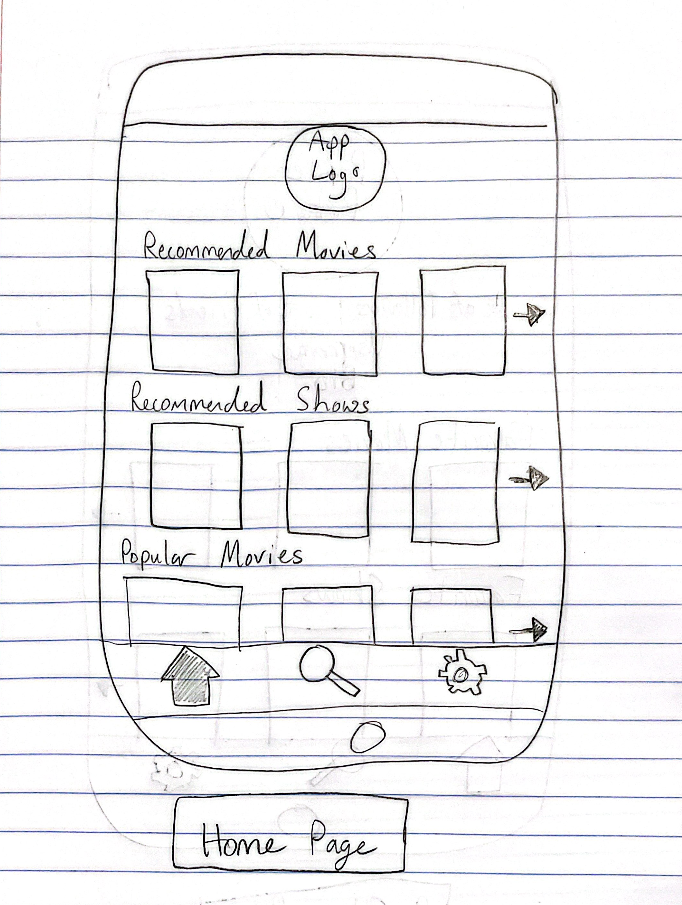 App
Logo
Recommended Movies
Recommended Shows
Popular Movies
Home Page